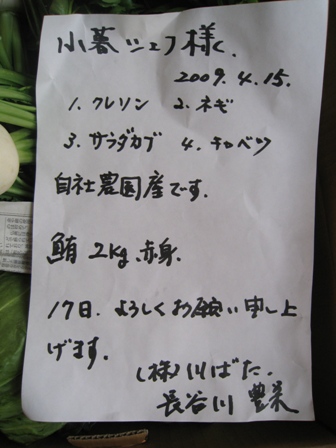 小暮シェフ様く.
2009.4.15.
1. クレソン 2. ネギ
3. サラダカブ 4. キャベツ
自社農園産です.
鮪 2kg 赤身.
17日. よろしくお願い申し上
げます.
(株)川ばた.
長谷川 豊